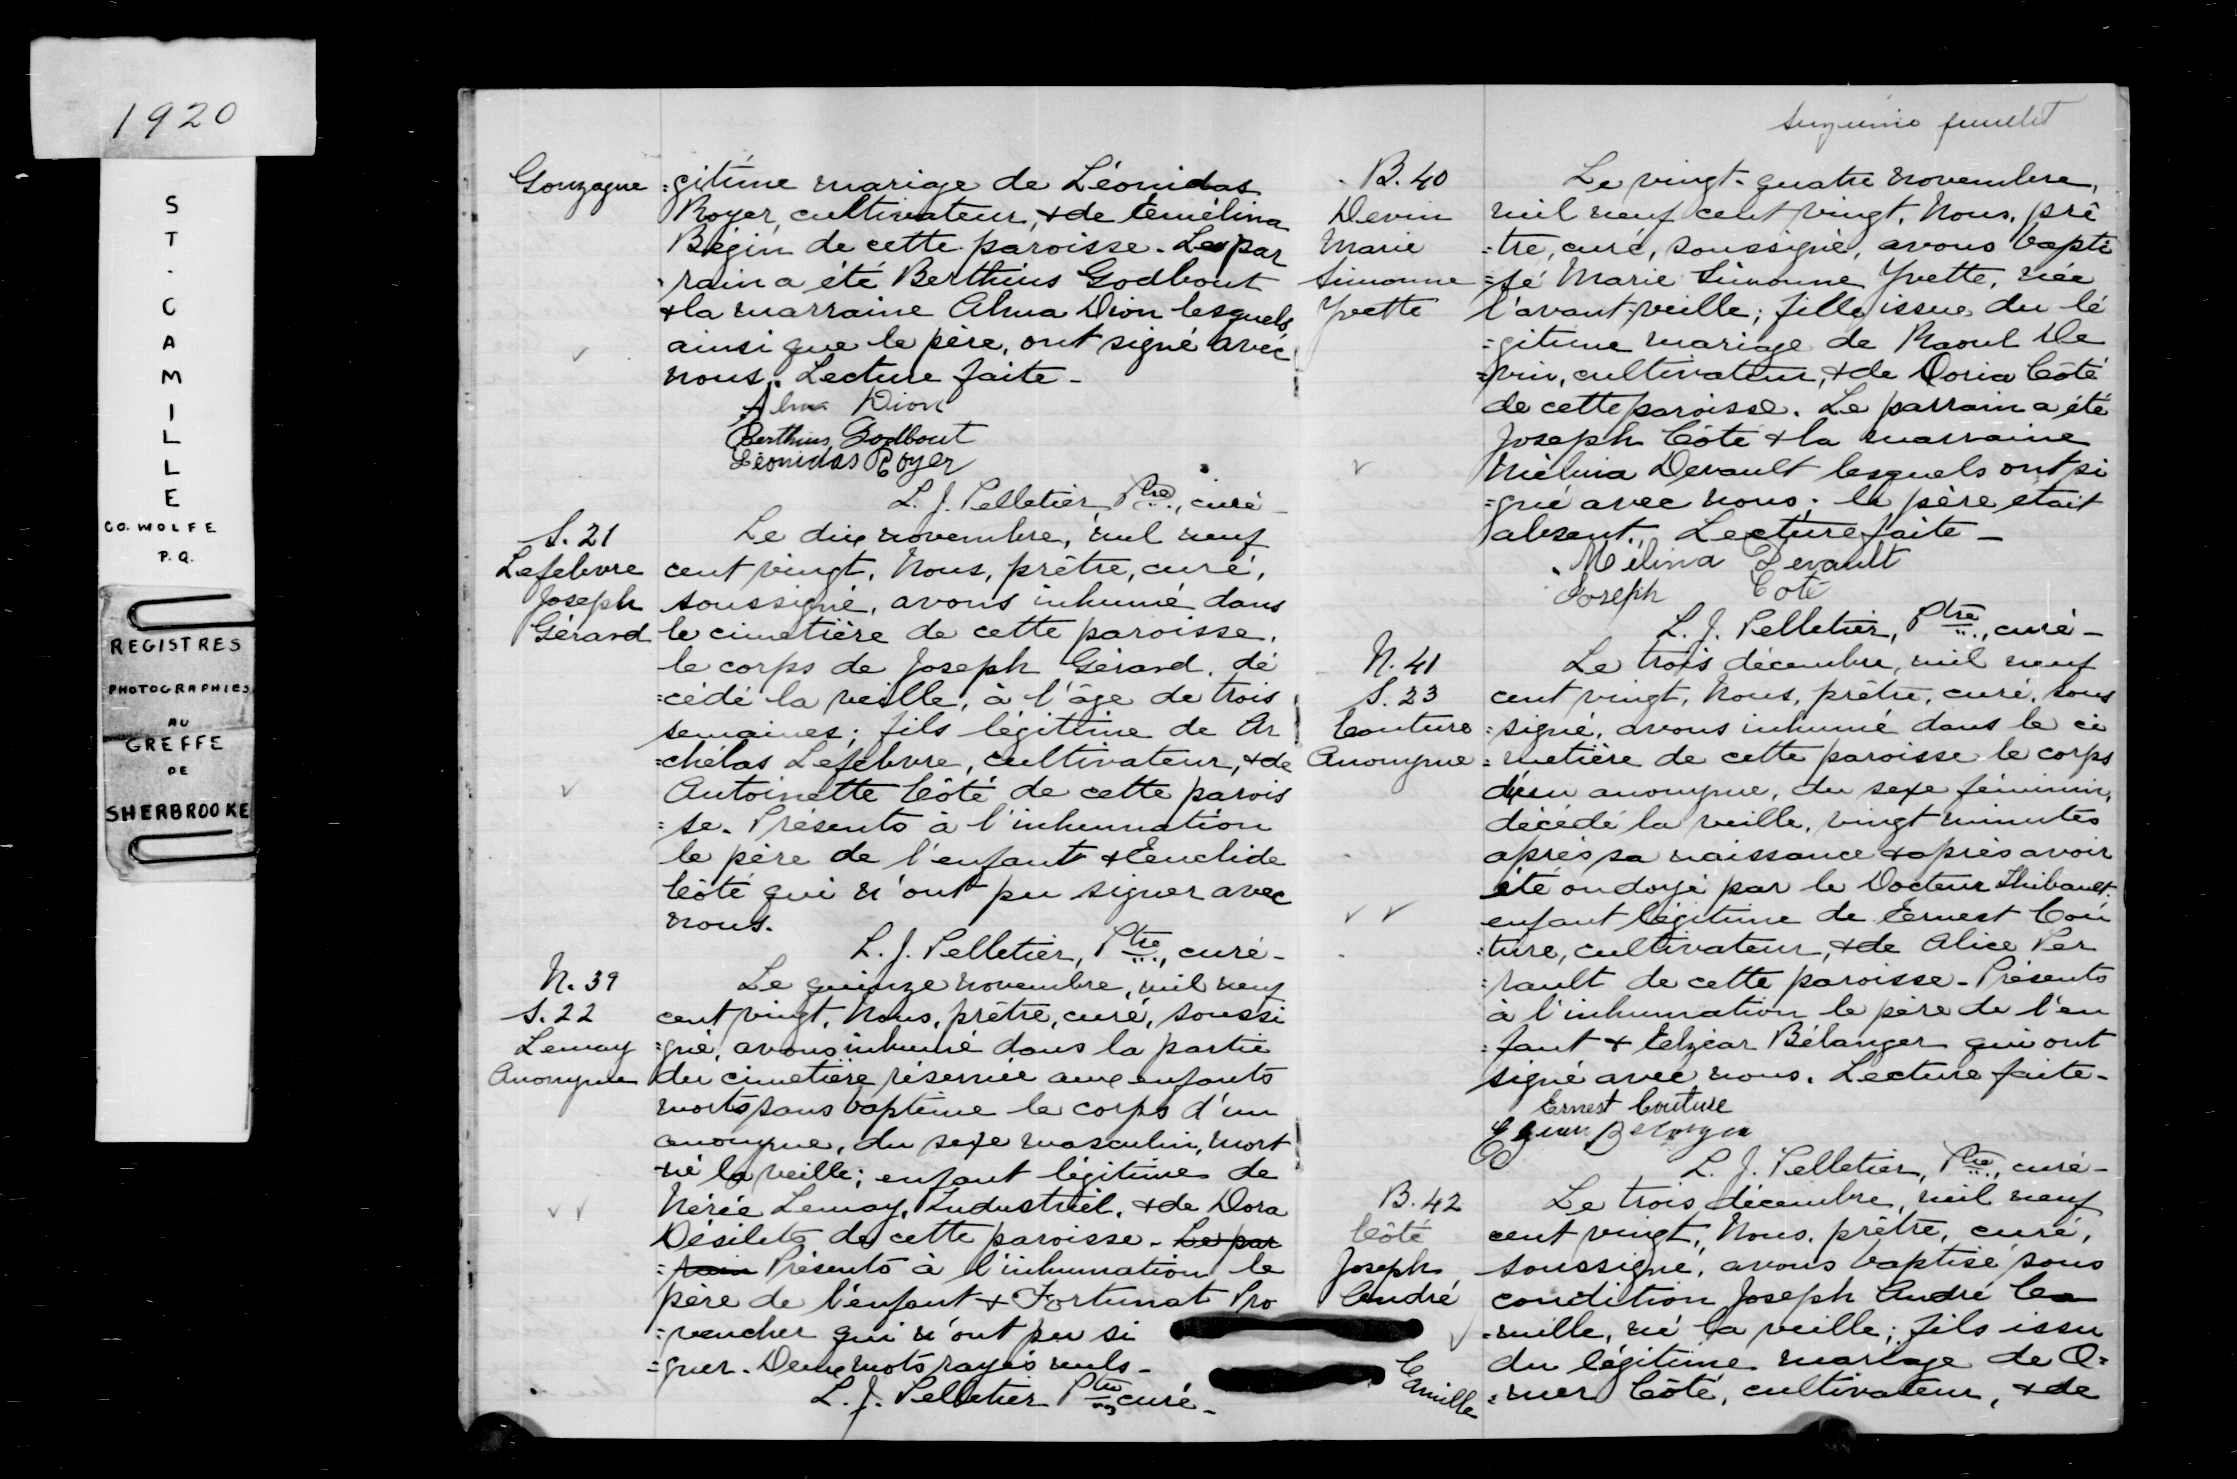 1920
S
T
.
C
A
M
I
L
L
E
CO. WOLFE
P.Q.
REGISTRES
PHOTOGRAPHIES
AU
GREFFE
DE
SHERBROOKE
Gonzague
=gitime mariage de Léonidas
Royer, cultivateur, & de Émélina
Bégin de cette paroisse. Le par
rain a été Berthius Godbout
& la marraine Alma Dion lesquels
ainsi que le père, ont signé avec
nous. Lecture faite -
Alma Dion
Berthius Godbout
Léonidas Royer
L. J. Pelletier, Ptre, curé -
S. 21
Lefebvre
Joseph
Gérard
Le dix novembre, mil neuf
cent vingt, Nous, prêtre, curé,
soussigné, avons inhumé dans
le cimetière de cette paroisse,
le corps de Joseph Gérard, dé
=cédé la veille, à l'âge de trois
semaines; fils légitime de Ar
=chélas Lefebvre, cultivateur, & de
Antoinette Côté de cette parois
=se. Présents à l'inhumation
le père de l'enfant & Euclide
Côté qui n'ont pu signer avec
nous.
L. J. Pelletier, Ptre, curé -
N. 39
S. 22
Lemay
Anonyme
Le quinze novembre, mil neuf
cent vingt, Nous, prêtre, curé, soussi
=gné, avons inhumé dans la partie
du cimetière réservée aux enfants
morts sans baptême le corps d'un
anonyme, du sexe masculin, mort
né la veille; enfant légitime de
Nérée Lemay, Industriel, & de Dora
Désilets de cette paroisse. Le par
=rain Présents à l'inhumation le
père de l'enfant & Fortunat Pro
=vencher qui n'ont pu si
=gner. Deux mots rayés nuls -
L. J. Pelletier Ptre curé -
feuillet
B. 40
Devin
Marie
Simonne
Yvette
Le vingt-quatre novembre,
mil neuf cent vingt, Nous, prê
=tre, curé, soussigné, avons bapti
=sé Marie Simonne Yvette, née
l'avant-veille; fille issue du lé
=gitime mariage de Raoul De
=vin, cultivateur, & de Doria Côté
de cette paroisse. Le parrain a été
Joseph Côté & la marraine
Mélina Devault lesquels ont si
=gné avec nous; le père était
absent. Lecture faite -
Mélina Devault
Joseph Coté
L. J. Pelletier, Ptre, curé -
N. 41
S. 23
Couture
Anonyme
Le trois décembre, mil neuf
cent vingt, Nous, prêtre, curé, sous
=signé, avons inhumé dans le ci
=metière de cette paroisse le corps
d'un anonyme, du sexe féminin,
décédé la veille, vingt minutes
après sa naissance & après avoir
été ondoyé par le Docteur Thibault,
enfant légitime de Ernest Cou
=ture, cultivateur, & de Alice Per
=rault de cette paroisse. Présents
à l'inhumation le père de l'en
=fant & Elzéar Bélanger qui ont
signé avec nous. Lecture faite -
Ernest Couture
L. J. Pelletier, Ptre, curé -
B. 42
Côté
Joseph
André
Camille
Le trois décembre, mil neuf
cent vingt, Nous, prêtre, curé,
soussigné, avons baptisé sous
condition Joseph André Ca
=mille, né la veille; fils issu
du légitime mariage de O=
=mer Côté, cultivateur, & de